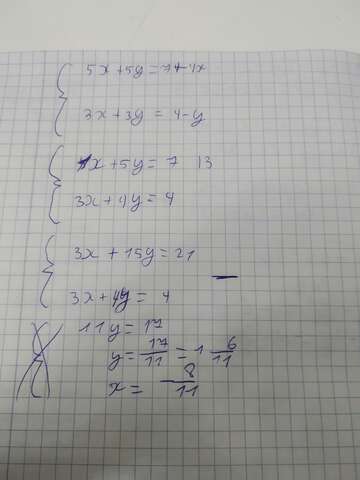 5x + 5y = 7 + 4x
3x + 3y = 4 - y
x + 5y = 7 | 3
3x + 4y = 4
3x + 15y = 21
3x + 4y = 4
11y = 17
y = 17/11 = 1 6/11
x = - 8/11